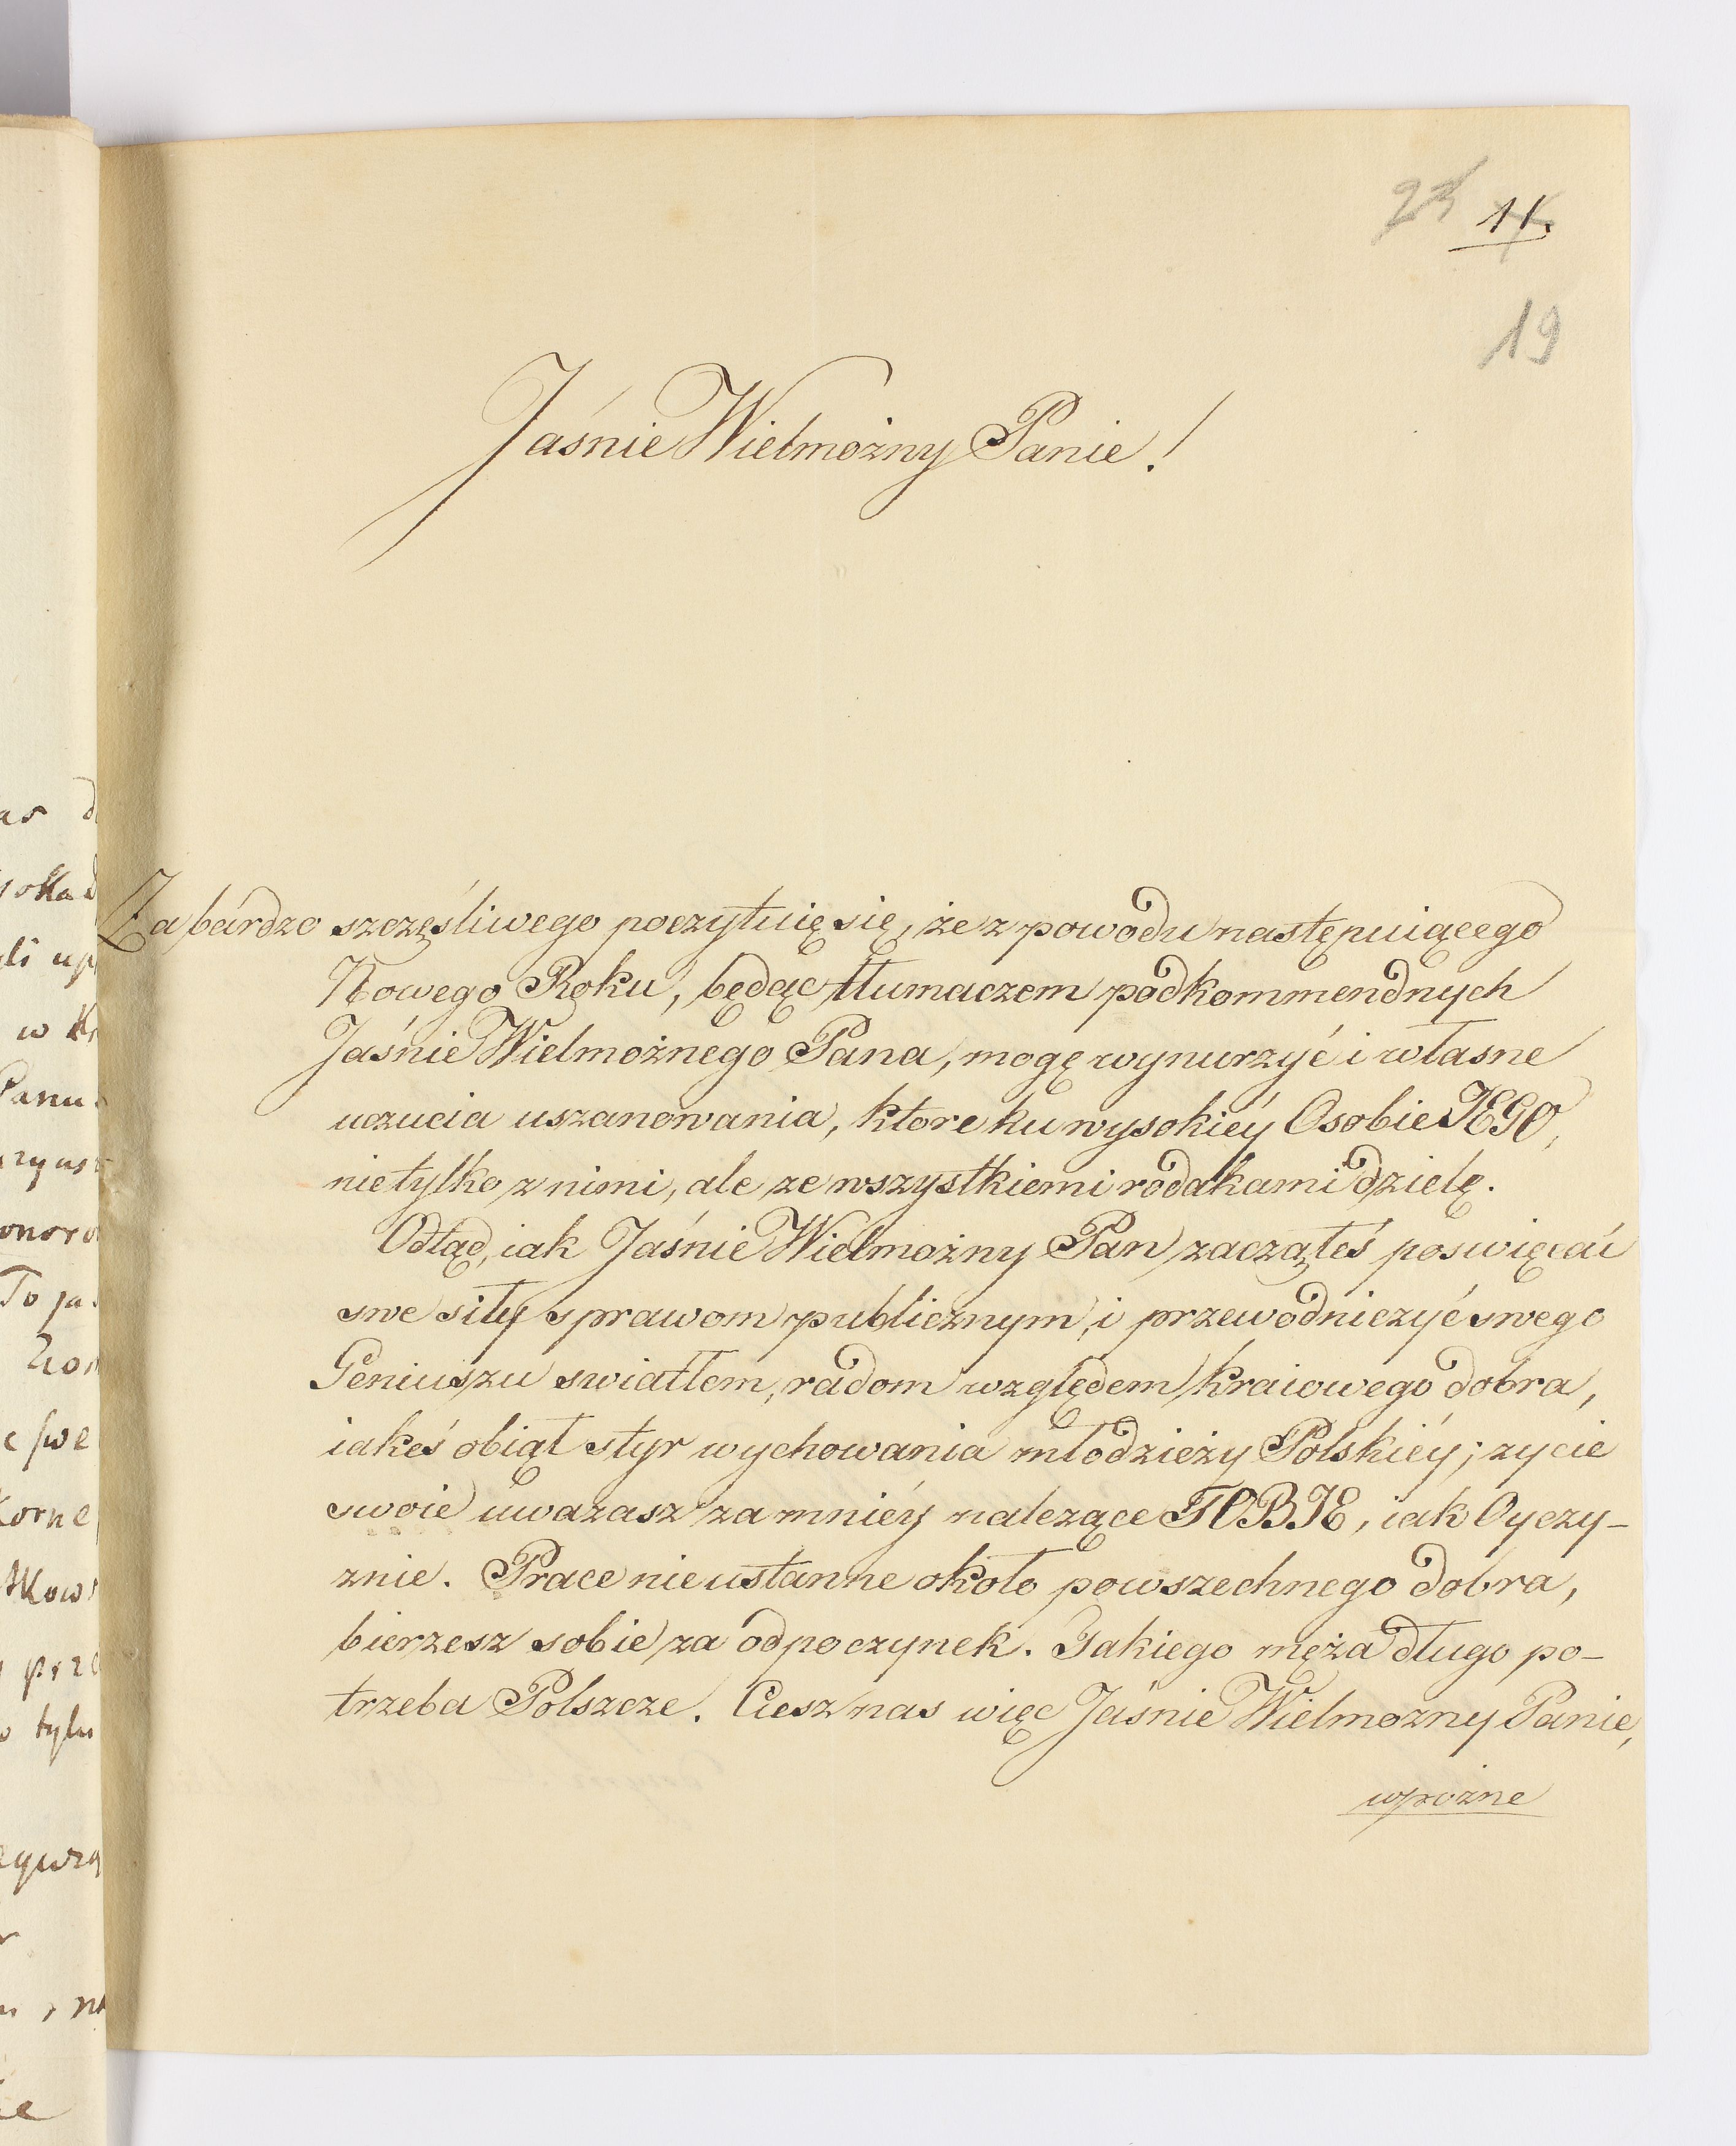 23 11.
19
Jaśnie Wielmożny Panie!
Za bardzo szczęśliwego poczytuię się, że z powodu następuiącego
Nowego Roku, będąc tłumaczem podkommendnych
Jaśnie Wielmożnego Pana, mogę wynurzyć i własne
uczucia uszanowania, ktore ku wysokiéy Osobie JEGO,
nietylko z nimi, ale ze wszystkiemi rodakami dzielę.
Odtąd, iak Jaśnie Wielmożny Pan zacząłeś poswięcać
swe siły sprawom publicznym, i przewodniczyć swego
Geniuszu swiatłem, radom względem kraiowego dobra,
iakeś obiął styr wychowania młodzieży Polskiéy; zycie
swoie uwazasz za mniéy nalezące TOBIE, iak Oyczy-
znie. Prace nieustanne około powszechnego dobra,
bierzesz sobie za odpoczynek. Takiego męża długo po-
trzeba Polszcze. Ciesz nas więc Jaśnie Wielmozny Panie,
wpozne